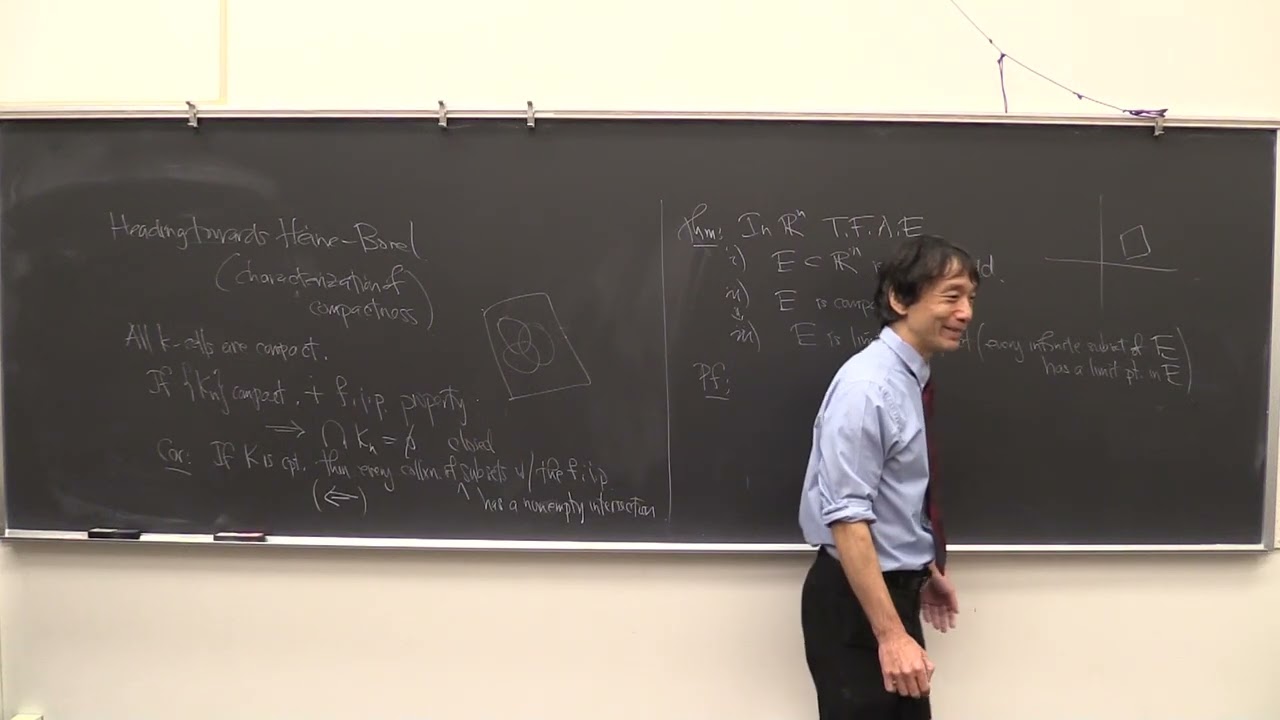 Heading towards Heine-Borel
(characterization of
compactness)
All k-cells are compact.
If {Kn} compact, + f.i.p. property.
⟹ ⋂ Kn = ∅ closed
Cor: If K is cpt. then every collxn. of ^ subsets w/ the f.i.p.
(⟸) has a nonempty intersection
Thm: In ℝⁿ T.F.A.E
i) E ⊂ ℝⁿ
ii) E is
iii) E is (every infinite subset of E
has a limit pt. in E)
Pf: